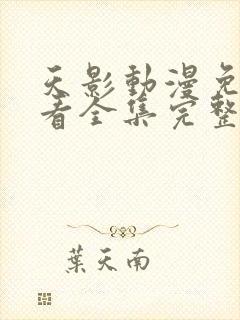 天影動漫免
看全集完整
葉天南